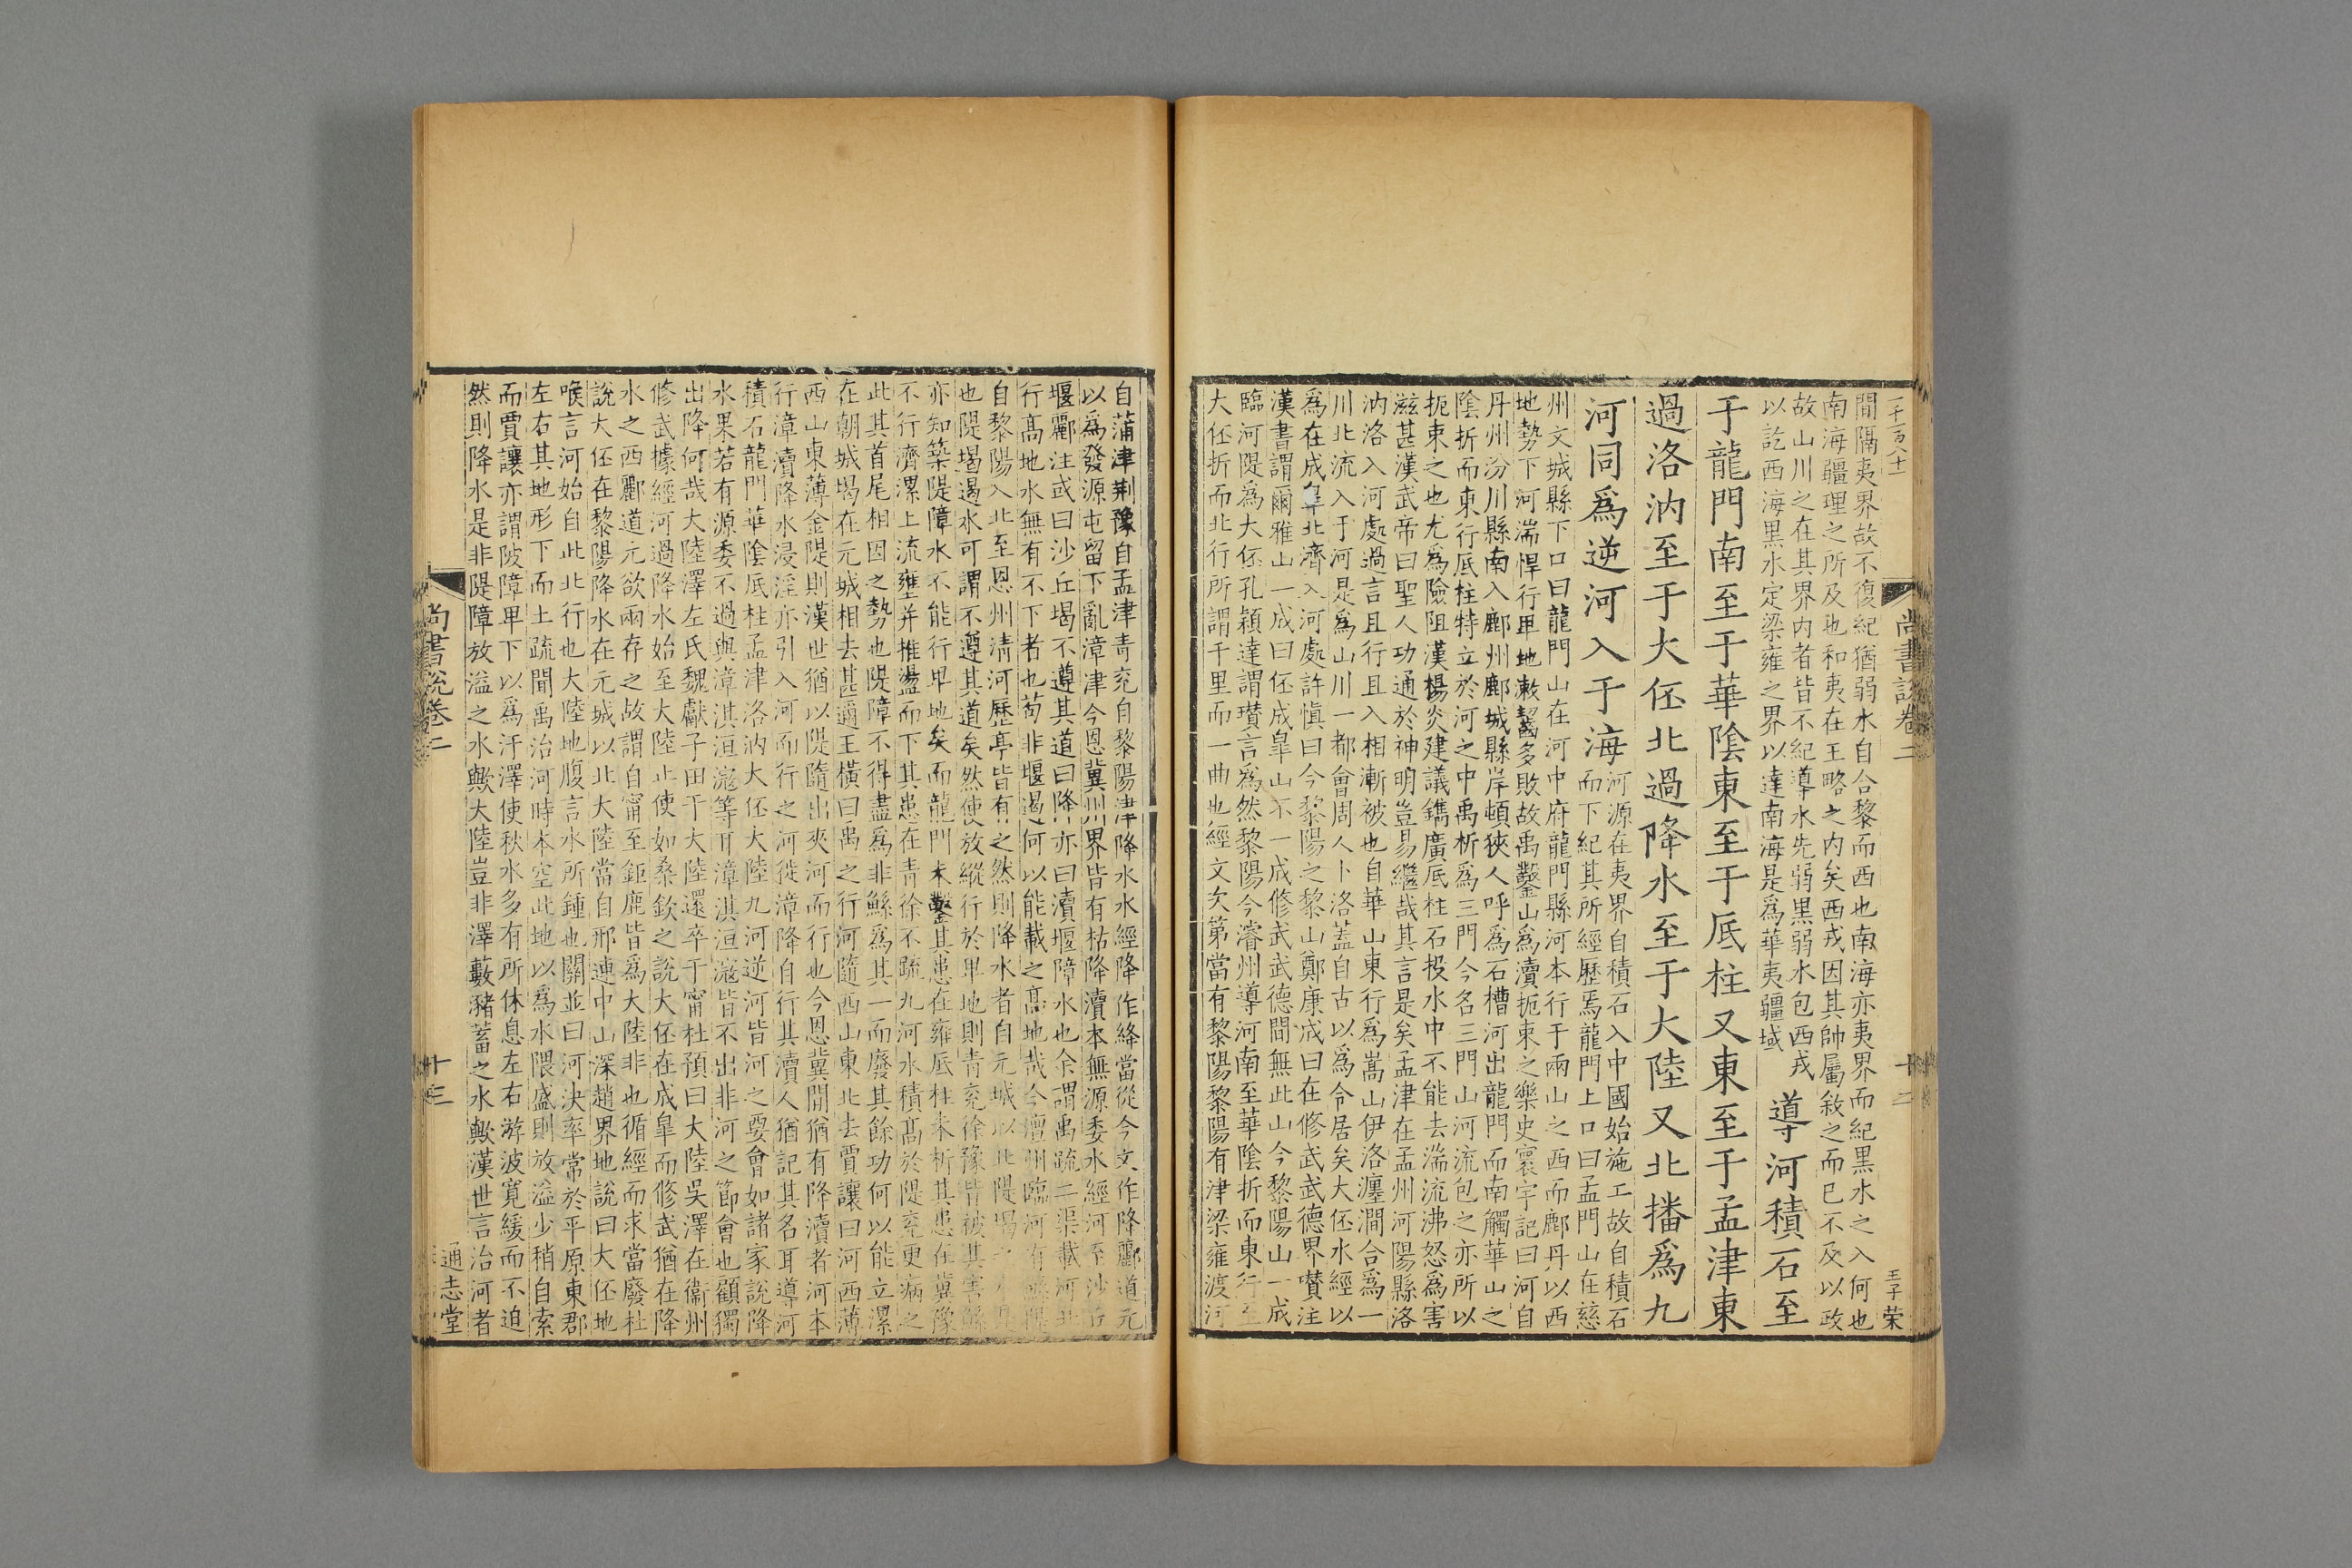 尚書說卷二
十二
間隔夷界故不復紀猶弱水自合黎而西也南海亦夷界而紀黑水之入何也
南海疆理之所及也和夷在王略之内矣西戎因其帥屬敘之而已不及以政
故山川之在其界内者皆不紀導水先弱黑弱水包西戎
以訖西海黑水定梁雍之界以達南海是為華夷疆域
導河積石至
于龍門南至于華陰東至于底柱又東至于孟津東
過洛汭至于大伾北過降水至于大陸又北播為九
河同為逆河入于海
河源在夷界自積石入中國始施工故自積石
而下紀其所經歷焉龍門上口曰孟門山在慈
州文城縣下口曰龍門山在河中府龍門縣河本行于兩山之西而鄜丹以西
地勢下河湍悍行平地漱齧多敗故禹鑿山為瀆扼束之樂史寰宇記曰河自
丹州汾川縣南入鄜州鄜城縣岸頓狹人呼為石槽河出龍門而南觸華山之
陰折而東行底柱特立於河之中禹析為三門今名三門山河流包之亦所以
扼束之也尤為險阻漢楊炎建議鐫廣底柱石投水中不能去湍流沸怒為害
滋甚漢武帝曰聖人功通於神明豈易繼哉其言是矣孟津在孟州河陽縣洛
汭洛入河處過言且行且入相漸被也自華山東行為嵩山伊洛瀍澗合為一
川北流入于河是為山川一都會周人卜洛蓋自古以為令居矣大伾水經以
為在成皐北濟入河處許慎曰今黎陽之黎山鄭康成曰在修武武德界㬤注
漢書謂爾雅山一成曰伾成皐山不一成修武武德間無此山今黎陽山一成
臨河隄為大伾孔穎達謂瓚言為然黎陽今濬州導河南至華陰折而東行至
大伾折而北行所謂千里而一曲也經文矣第當有黎陽黎陽有津梁雍渡河
自蒲津荆豫自孟津青兖自黎陽津降水水經降作絳當從今文作降酈道元
以為發源屯留下亂漳津今恩冀州界皆有枯降瀆本無源委水經河至沙丘
堰酈注武曰沙丘堨不遵其道曰降亦曰瀆堰障水也余謂禹疏二渠載河北
行髙地水無有不下者也苟非堰遏何以能載之髙地哉今澶州臨河有
自黎陽入北至恩州清河歷亭皆有之然則降水者自元城以北隄堨
也隄堨遏水可謂不遵其道矣然使放縱行於卑地則青兖徐豫皆被其害
亦知築隄障水不能行卑地矣而龍門未鑿其患在雍底柱未析其患在冀豫
不行濟漯上流壅并推盪而下其患在青徐不疏九河水積髙於隄兖更病之
此其首尾相因之勢也隄障不得盡為非鯀為其一而廢其餘功何以能立漯
在朝城堨在元城相去甚邇王橫曰禹之行河隨西山東北去賈讓曰河西薄
西山東薄金隄則漢世猶以隄隨出夾河而行也今恩冀間猶有降瀆者河本
行漳瀆降水浸淫亦引入河而行之河徙漳降自行其瀆人猶記其名耳導河
積石龍門華陰底柱孟津洛汭大伾大陸九河逆河皆河之要會如諸家說降
水果若有源委不過與漳淇洹滱等耳漳淇洹滱皆不出非河之節會也顧獨
出降何哉大陸澤左氏魏獻子田于大陸還卒于甯杜預曰大陸吳澤在衞州
修武據經河過降水始至大陸止使如桑欽之說大伾在成皐而修武猶在降
水之西酈道元欲兩存之故謂自甯至鉅鹿皆為大陸非也循經而求當廢杜
說大伾在黎陽降水在元城以北大陸當自邢連中山深趙界地說曰大伾地
喉言河始自此北行也大陸地腹言水所鍾也關並曰河決率常於平原東郡
左右其地形下而土疏聞禹治河時本空此地以為水隈盛則放溢少稍自索
而賈讓亦謂陂障卑下以為汙澤使秋水多有所休息左右游波寬緩而不迫
然則降水是非隄障放溢之水歟大陸豈非澤藪豬蓄之水歟漢世言治河者
尚書說卷二
十三
通志堂